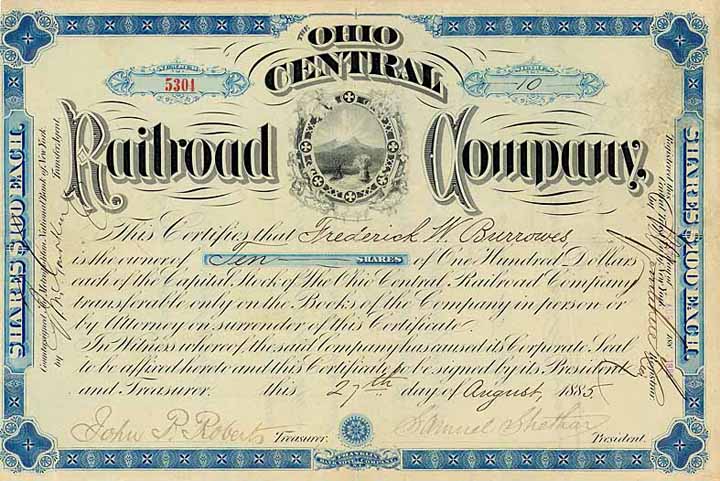 THE
OHIO
CENTRAL
5301
10
Railroad Company,
This Certifies that Frederick W. Burrowes
is the owner of Ten SHARES of One Hundred Dollars
each of the Capital Stock of The Ohio Central Railroad Company
transferable only on the Books of the Company in person or
by Attorney on surrender of this Certificate.
In Witness whereof the said Company has caused its Corporate Seal
to be affixed hereto and this Certificate to be signed by its President
and Treasurer. this 27th day of August, 1885
John P. Roberts Treasurer. Samuel President.
SHARES $100 EACH
SHARES $100 EACH
Countersigned, the Metropolitan National Bank of New York
Transfer Agent.
by
Registered this